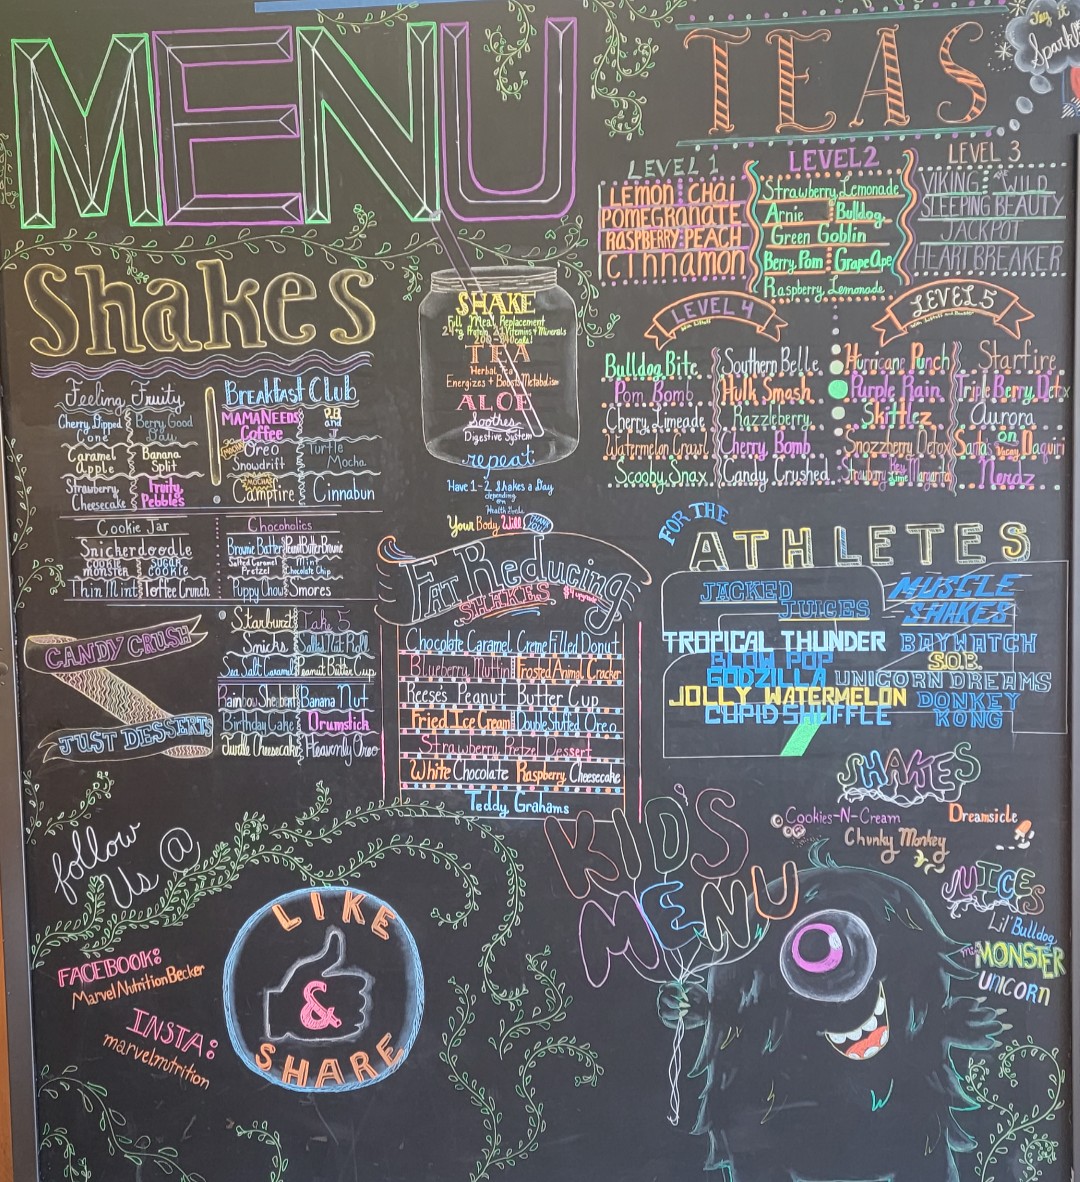 MENU
TEAS
LEVEL 1
LEMON CHAI
POMEGRANATE
RASPBERRY PEACH
CINNAMON
LEVEL 2
Strawberry Lemonade
Arnie Bulldog
Green Goblin
Berry Pom Grape Ape
Raspberry Lemonade
LEVEL 3
VIKING THE WILD
SLEEPING BEAUTY
JACKPOT
HEARTBREAKER
LEVEL 4
Bulldog Bite Southern Belle
Pom Bomb Hulk Smash
Cherry Limeade Razzleberry
Watermelon Crawl Cherry Bomb
Scooby Snax Candy Crushed
LEVEL 5
Hurricane Punch Starfire
Purple Rain Triple Berry Detx
Skittlez Aurora
Snozzberry Detox Santa's on Vacay Daquiri
Strawberry Key Lime Margarita Nerdz
Shakes
Feeling Fruity
Cherry Dipped Cone Berry Good Day
Caramel Apple Banana Split
Strawberry Cheesecake Fruity Pebbles
Breakfast Club
MAMA NEEDS Coffee P.B and J
Oreo Snowdrift Turtle Mocha
MOCHA Campfire Cinnabun
Cookie Jar
Snickerdoodle
COOKIE MONSTER SUGAR COOKIE
Thin Mint Toffee Crunch
Chocoholics
Brownie Batter Peanut Butter Brownie
Salted Caramel Pretzel Mint Chocolate Chip
Puppy Chow Smores
CANDY CRUSH
Starburst Take 5
Snicks Salted Nut Roll
Sea Salt Caramel Peanut Butter Cup
JUST DESSERTS
Rainbow Sherbert Banana Nut
Birthday Cake Drumstick
Turtle Cheesecake Heavenly Oreo
SHAKE
Full Meal Replacement
24g Protein 21 Vitamins + Minerals
TEA
Herbal Tea
Energizes + Boosts Metabolism
ALOE
Soothes
Digestive System
repeat
Have 1-2 Shakes a Day
depending
on
Health Goals
Your Body Will THANK YOU!
Fat Reducing
SHAKES
Chocolate Caramel Creme Filled Donut
Blueberry Muffin Frosted Animal Cracker
Reese's Peanut Butter Cup
Fried Ice Cream Double Stuffed Oreo
Strawberry Pretzel Dessert
White Chocolate Raspberry Cheesecake
Teddy Grahams
FOR THE
ATHLETES
JACKED
JUICES
TROPICAL THUNDER
BLOW POP
GODZILLA
JOLLY WATERMELON
CUPID SHUFFLE
MUSCLE
SHAKES
BAYWATCH
S.O.B.
UNICORN DREAMS
DONKEY
KONG
KID'S
MENU
SHAKES
Cookies-N-Cream
Dreamsicle
Chunky Monkey
JUICES
Lil' Bulldog
mini MONSTER
UNICORN
follow
Us @
FACEBOOK:
MarvelNutritionBecker
INSTA:
marvel.nutrition
LIKE
&
SHARE